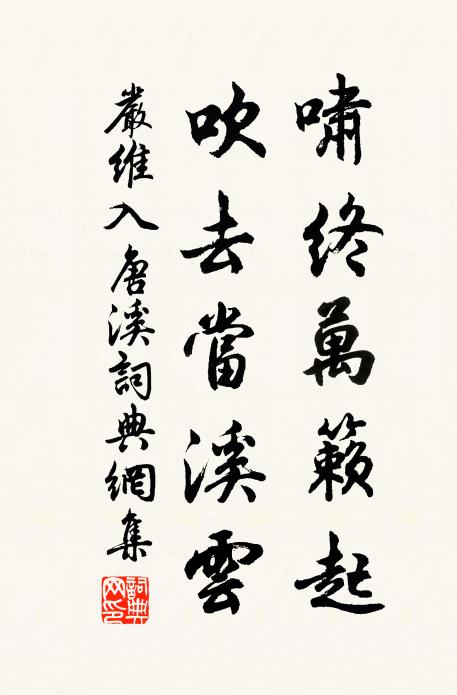 嘯終萬籟起
吹去當溪雲
嚴維入唐溪詞典網集
詞典網印